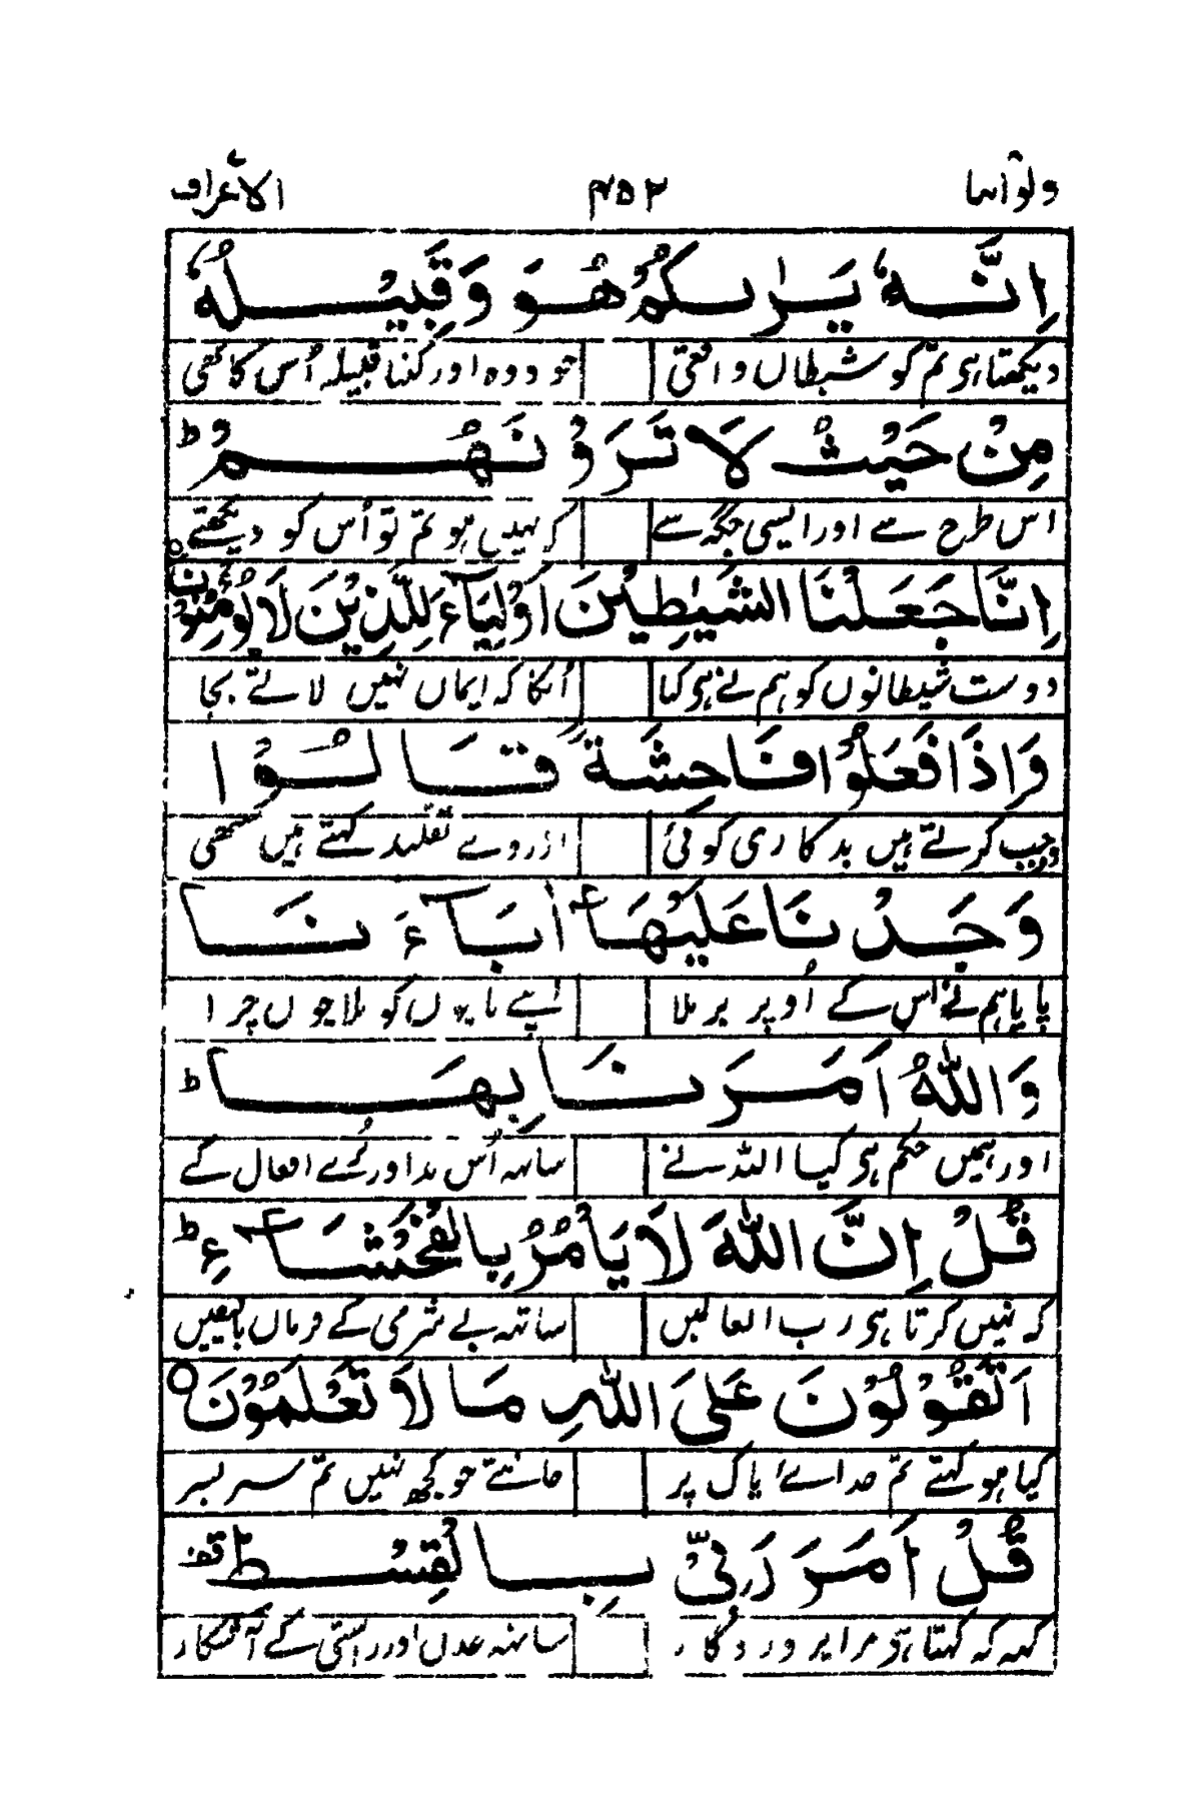 ولواننا ۴۵۲ الاعراف
اِنَّهٗ يَرٰىكُمْ هُوَ وَقَبِيْلُهٗ
دیکھتا ہی تم کو شیطاں واقعی جو دوہ اور کنبا قبیلہ اُس کا کئی
مِنْ حَيْثُ لَا تَرَوْنَهُمْ ط
اس طرح سے اور ایسی جگہ سے کہ نہیں ہو تم تو اُس کو دیکھتے
اِنَّا جَعَلْنَا الشَّيٰطِيْنَ اَوْلِيَآءَ لِلَّذِيْنَ لَا يُؤْمِنُوْنَ ○
دوست شیطانوں کو ہم نے ہی کیا اُنکا کہ ایماں نہیں لاتے بجا
وَاِذَا فَعَلُوْا فَاحِشَةً قَالُوْا
وجب کرتے ہیں بدکاری کوئی ازروے تقلید کہتے ہیں سبھی
وَجَدْنَا عَلَيْهَآ اٰبَآءَنَا
پایا ہم نے اس کے اُوپر برملا اپنے بابوں کو بلا چوں چرا
وَاللّٰهُ اَمَرَنَا بِهَا ط
اور ہمیں حکم ہی کیا اللہ نے ساتھ اُس بد اور بُرے افعال کے
قُلْ اِنَّ اللّٰهَ لَا يَاْمُرُ بِالْفَحْشَآءِ ط
کہ نہیں کرتا ہی رب العالمیں ساتھ بے شرمی کے فرماں بالیقیں
اَتَقُوْلُوْنَ عَلَى اللّٰهِ مَا لَا تَعْلَمُوْنَ ○
کیا ہو کہتے تم خداے پاک پر جانتے جو کچھ نہیں تم سر بسر
قُلْ اَمَرَ رَبِّيْ بِالْقِسْطِ قف
کہہ کہ کہتا ہے مرا پروردگار ساتھ عدل اور راستی کے آشکار